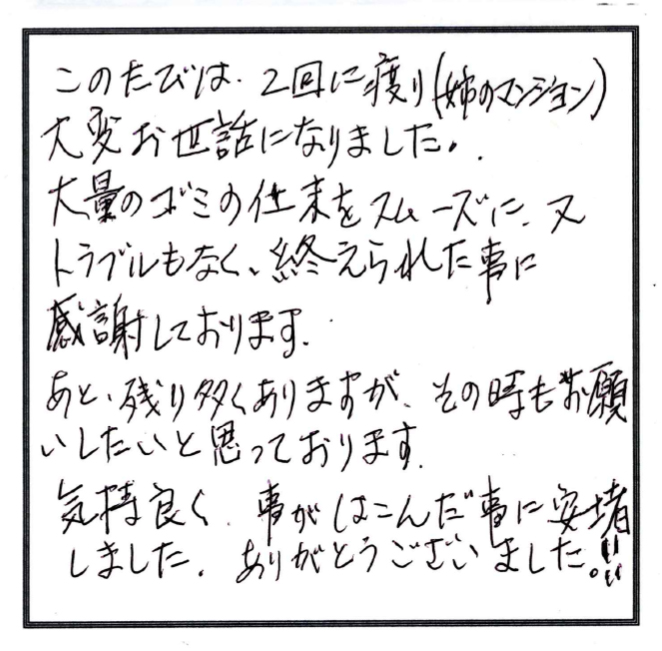 このたびは、2回に渡り(姉のマンション)
大変お世話になりました。
大量のゴミの仕末をスムーズに、又
トラブルもなく、終えられた事に
感謝しております。
あと、残り多くありますが、その時もお願
いしたいと思っております。
気持良く、事がはこんだ事に安堵
しました。ありがとうございました。!!